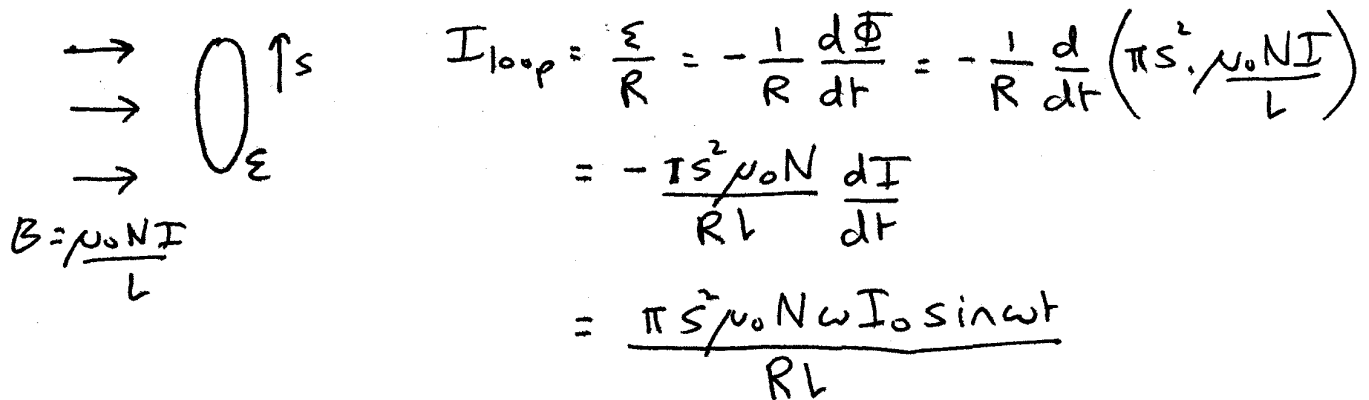 s
ε
B = μ₀NI / L
I_loop = ε/R = - 1/R dΦ/dt = - 1/R d/dt (πs². μ₀NI / L)
= - πs²μ₀N / RL dI/dt
= πs²μ₀NωI₀ sinωt / RL